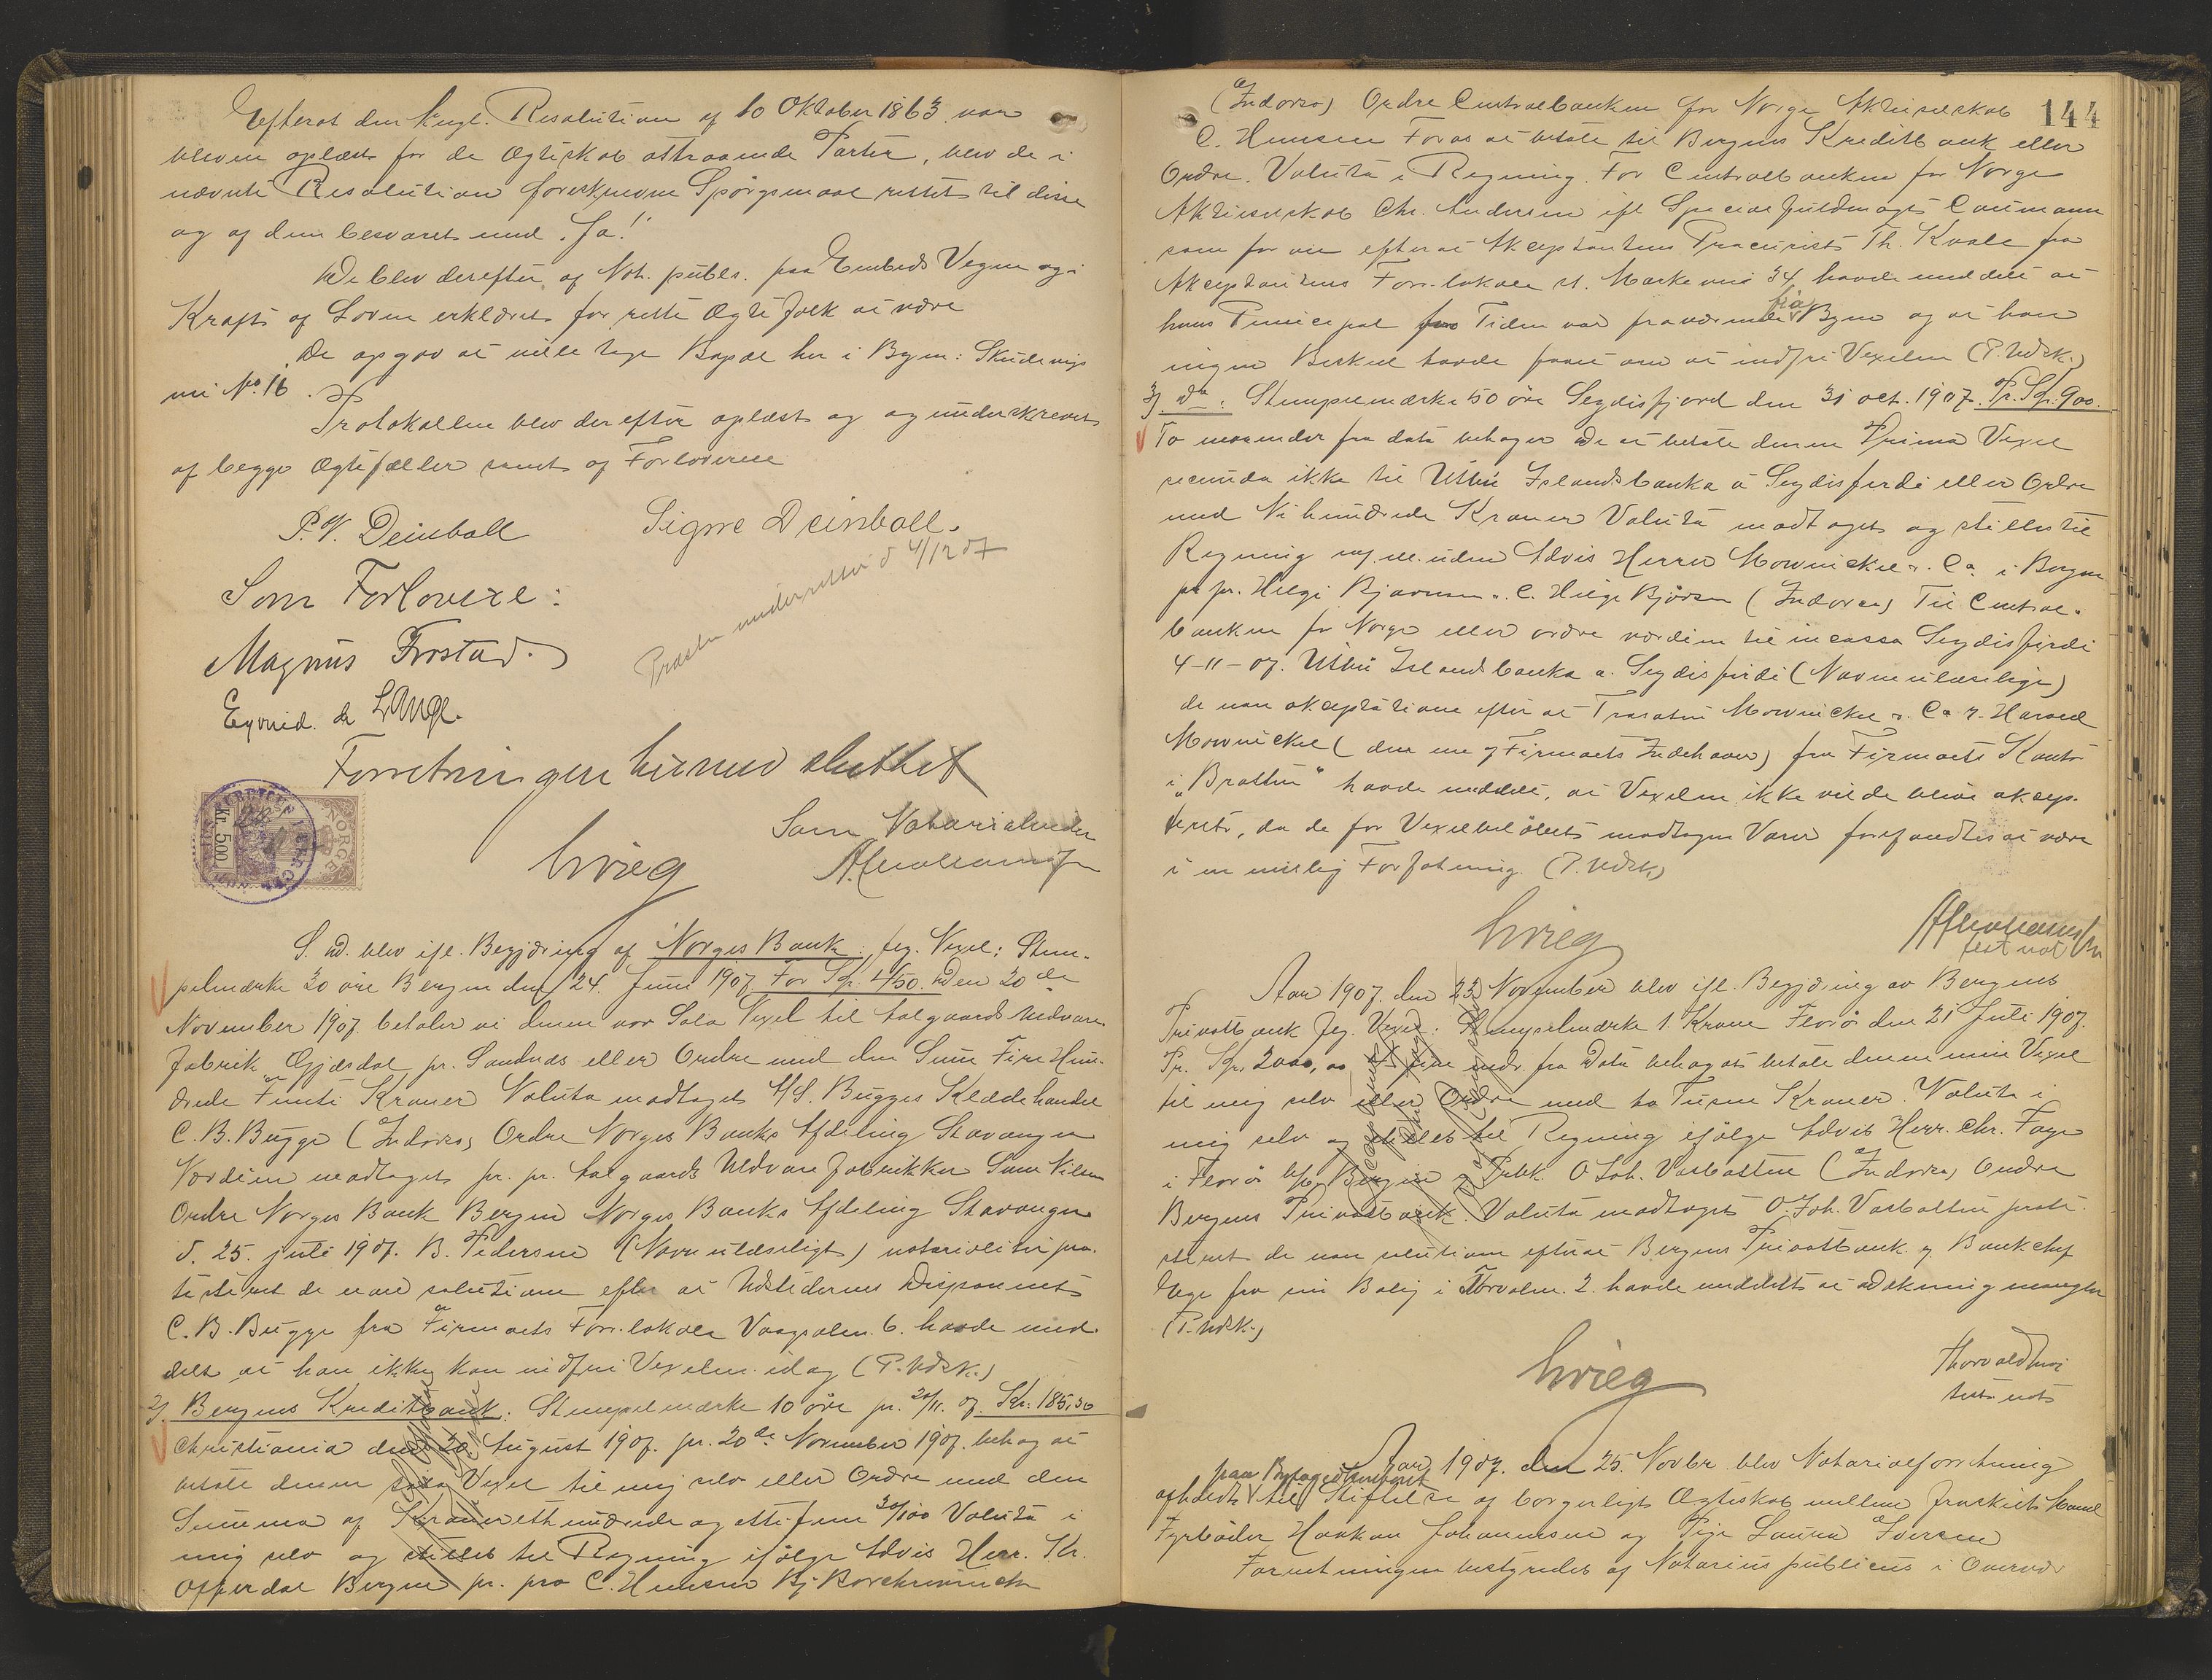 Efterat den kngl. Resolution af 10 Oktober 1863 var
bleven oplæst for de Ægteskab attraaende Parter, blev de i
nævnte Resolution foreskrevne Spörgsmaal rettet til disse
og af dem besvaret med "Ja!"
De blev derefter af Not. publ. paa Embeds Vegne og i
Kraft af Loven erklæret for rette Ægtefolk at være
De opgav at ville tage Bopæl her i Byen: Skudevigs
vei No. 16.
Protokollen blev derefter oplæst og underskrevet
af begge Ægtefæller samt af Forloverne
P. V. Deinboll Signe Deinboll.
Præsten underrettet d 4/12 07
Som Forlovere:
Magnus Frostad.
Eyvind de Lange.
Forretningen hermed sluttet
Som Notarialvidne
Krieg
NORGE
kr. 5.00
S. D. blev ifl. Begjæring af Norges Bank flg. Vexel: Stem-
pelmærke 30 öre Bergen den 24. Juni 1907 For Kr. 450. Den 20de
November 1907 betaler vi denne vor Sola Vexel til Aalgaards Uldvare
fabrik Gjæsdal pr. Sandnæs eller Ordre med den Sum Fire Hun-
drede Femti Kroner Valuta modtaget A/S. Bugges Klædehandel
C. B. Bugge (Indorso) Ordre Norges Banks Afdeling Stavanger
Værdien modtaget pr. pr. Aalgaards Uldvarefabrikker Sum Nilsen
Ordre Norges Bank Bergen Norges Banks Afdeling Stavanger
d. 25. juli 1907. B. Pedersen (Navn ulæseligt) notarialiter pro-
testeret de non solutione efter at Udstedernes Disponent
C. B. Bugge fra Firmaets Forr.lokale Vaagsalm. 6. havde med-
delt at han ikke kan indfri Vexelen idag (P. Udsk.)
2/. Bergens Kreditbank: Stempelmærke 10 öre pr. 20/11. 07. Kr. 185,30
Christiania den 20. August 1907. pr. 20de November 1907. behag at
betale denne Vexel til mig selv eller Ordre med den
Summa af Kroner ethundrede og otti fem 30/100 Valuta i
mig selv og stilles til Regning ifölge Advis Herr. Kr.
Offerdal Bergen pr. pro C. Hemsen Bj. Borchrevinck
144
(Indorso) Ordre Centralbanken for Norge Aktieselskab
C. Hemsen For os at betale til Bergens Kreditbank eller
Ordre. Valuta i Regning. For Centralbanken for Norge
Aktieselskab Chr. Andersen ifl Specialfuldmagt Caumann
som for efter at Akceptantens Procurist Th. Kvale fra
Akceptantens Forr.lokale st. Markevei 34, havde meddelt at
hans Principal for Tiden var fraværende fra Byen og at han
ingen Besked havde faaet om at indfri Vexelen (P. Udsk.)
3/. Do: Stempelmærke 50 öre Seydisfjord den 31 oct. 1907. Pr. Kr. 900.
To maaneder fra dato behager De at betale denne Prima Vexel
secunda ikke til Utbú Islandsbanka á Seydisfirdi eller Ordre
med Nihundrede Kroner Valuta modtaget og stilles til
Regning uden Advis Herrer Mowinckel & Co. i Bergen
pr pr. Helgi Bjarnson. C. Helge Björson (Indorso) Til Central-
banken for Norge eller ordre værdien til incasso Seydisfirdi
4-11-07. Utbú Islandsbanka á. Seydisfirdi (Navn ulæselige)
de non akceptatione efter at Trassaten Mowinckel & Co v. Harald
Mowinckel (den ene af Firmaets Indehaver) fra Firmaets Kontor
i "Bratten" havde meddelt, at Vexelen ikke vilde blive akcep-
teret, da de for Vexelbelöbet modtagne Varer forefandtes at være
i en mislig Forfatning. (P. Udsk.)
Krieg
test not
Aar 1907. den 23 November blev ifl. Begjæring av Bergens
Privatbank flg. Vexel: Stempelmærke 1 Krone Florö den 21 Juli 1907.
Pr. Kr. 2000,00 4 fire mdr. fra Dato behag at betale denne min Vexel
til mig selv eller Ordre med to Tusen Kroner. Valuta i
mig selv og stilles til Regning ifölge Advis Herr. Chr. Faye
i Florö Bergen O. Joh. Vasbotten (Indorso) Ordre
Bergens Privatbank. Valuta modtaget O. Joh. Vasbotten prote-
steret de non solutione efter at Bergens Privatbank v Bankchef
fra sin Bolig i Torvalm. 2. havde meddelt at dækning mangler
(P. Udsk.)
Krieg
test not
Aar 1907. den 25. Novbr blev Notarialforretning
paa Byfogedkontoret
afholdt til Stiftelse af borgerligt Ægteskab mellem fraskilt Mand
Fyrböder Haakon Johannesen og Pige Laura Iversen
Forretningen bestyredes af Notarius publicus i Overvær